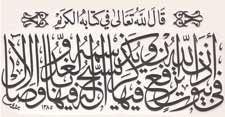 قال الله تعالى في كتابه الكريم
في بيوت أذن الله أن ترفع ويذكر فيها اسمه يسبح له فيها بالغدو والآصال